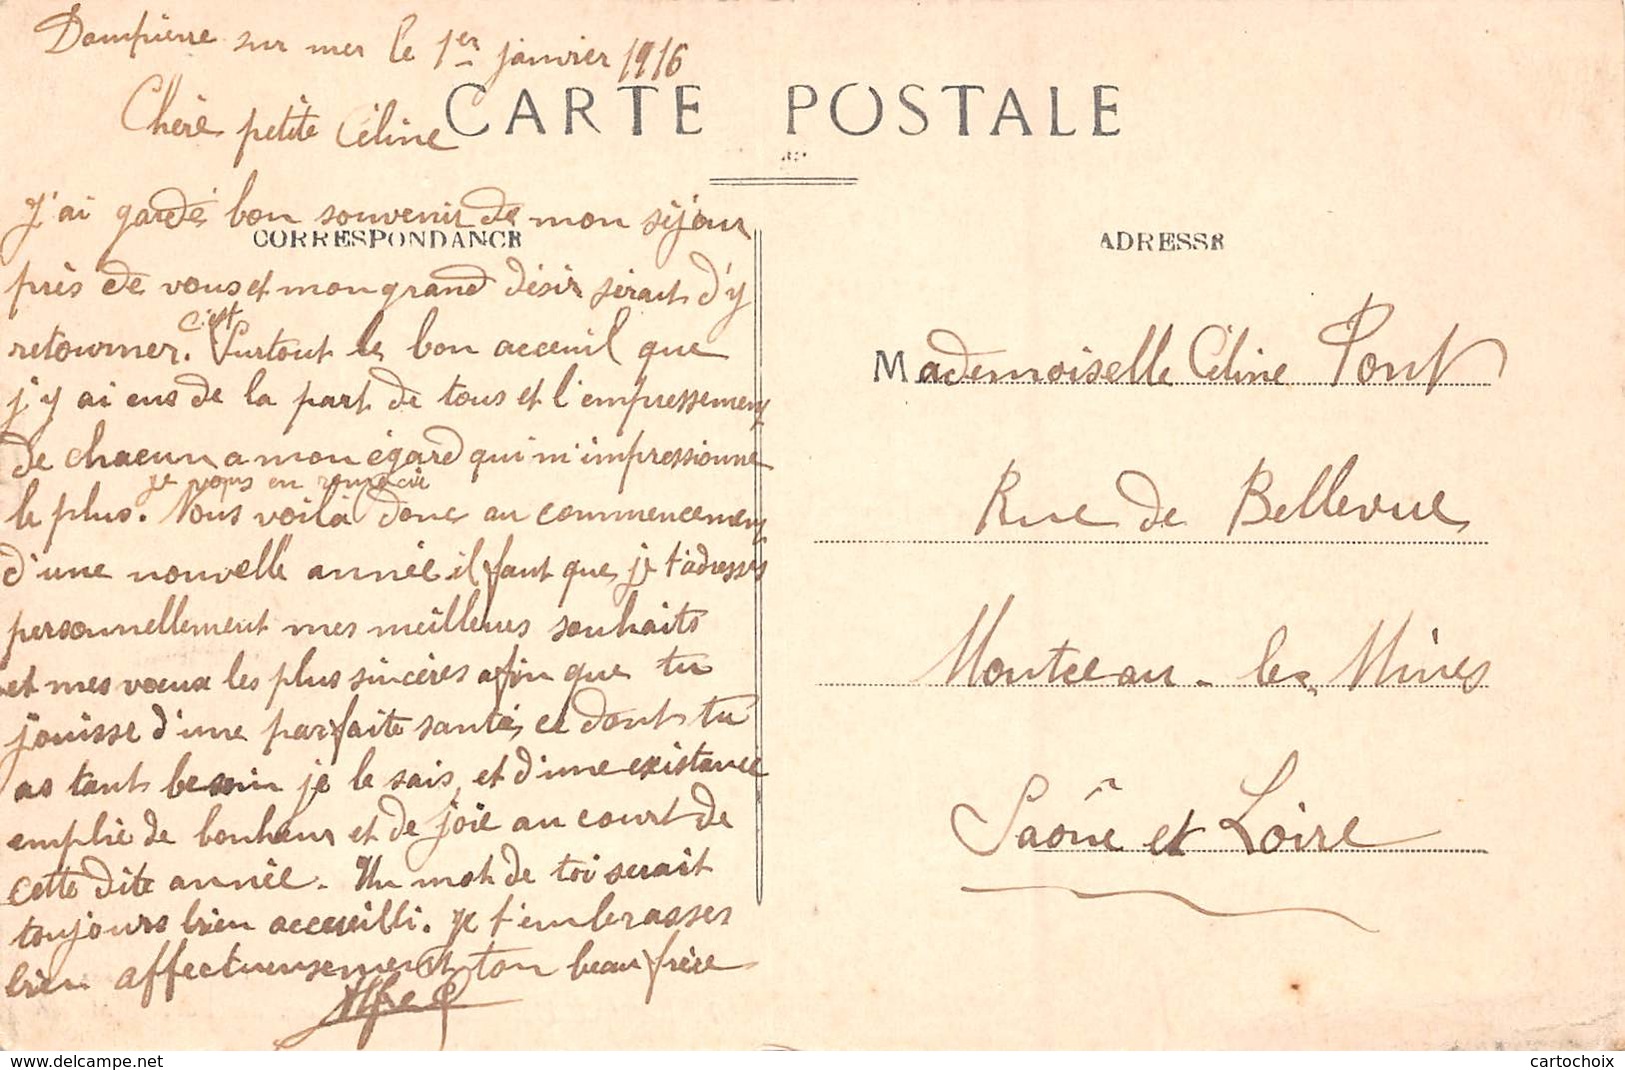 Dampierre sur mer le 1er janvier 1916
Chère petite Céline
CARTE POSTALE
J'ai gardé bon souvenir de mon séjour
CORRESPONDANCE
près de vous et mon grand désir serait d'y
c'est
retourner. Surtout le bon acceuil que
j'y ai eus de la part de tous et l'empressement
de chacun a mon égard qui m'impressionne
je vous en remercie
le plus. Nous voilà donc au commencement
d'une nouvelle année il faut que je t'adresses
personnellement mes meilleurs souhaits
et mes vœux les plus sincères afin que tu
jouisse d'une parfaite santé, ce dont tu
as tant besoin je le sais, et d'une existance
emplie de bonheur et de joie au court de
cette dite année. Un mot de toi serait
toujours bien accueilli. Je t'embrasses
bien affectueusement ton beau frère
Alfred
ADRESSE
Mademoiselle Céline Pont
Rue de Bellevue
Montceau-les-Mines
Saône et Loire
www.delcampe.net
cartochoix